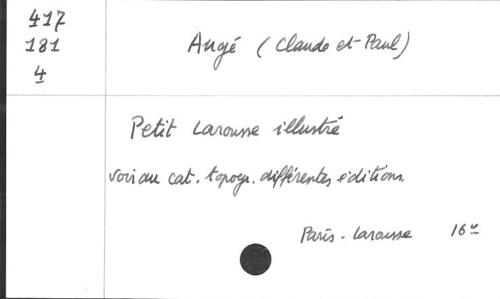 417
181
4
Augé (Claude et Paul)
Petit Larousse illustré
voir au cat. topogr. différentes éditions.
Paris - Larousse 16°